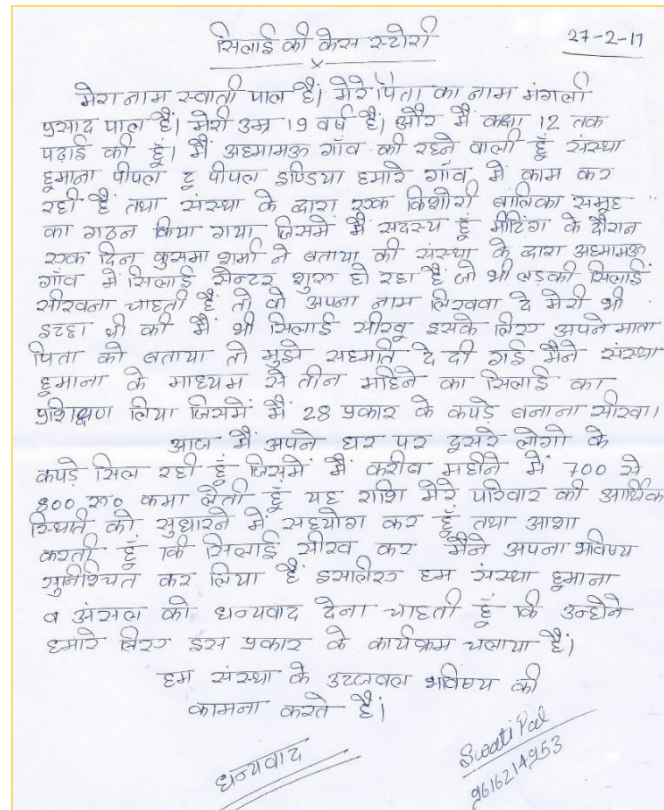 सिलाई की केस स्टोरी
27-2-17
x
मेरा नाम स्वाती पाल हैं। मेरे पिता का नाम मंगली
प्रसाद पाल हैं। मेरी उम्र 19 वर्ष हैं। और मैं कक्षा 12 तक
पढाई की हूँ। मैं अहमामऊ गाँव की रहने वाली हूँ संस्था
हूमाना पीपल टू पीपल इण्डिया हमारे गाँव में काम कर
रही हैं तथा संस्था के द्वारा एक किशोरी बालिका समूह
का गठन किया गया जिसमें मैं सदस्य हूँ मीटिंग के दौरान
एक दिन कुसमा शर्मा ने बताया की संस्था के द्वारा अहमामऊ
गाँव में सिलाई सेन्टर शुरू हो रहा हैं जो भी लड़की सिलाई
सीखना चाहती हैं तो वो अपना नाम लिखवा दे मेरी भी
इच्छा थी की मैं भी सिलाई सीखू इसके लिए अपने माता
पिता को बताया तो मुझे सहमति दे दी गई मैंने संस्था
हूमाना के माध्यम से तीन महिने का सिलाई का
प्रशिक्षण लिया जिसमें मैं 28 प्रकार के कपड़े बनाना सीखा।
आज मैं अपने घर पर दूसरे लोगो के
कपड़े सिल रही हूँ जिसमें मैं करीब महीने में 700 से
800 रू० कमा लेती हूँ यह राशि मेरे परिवार की आर्थिक
स्थिति को सुधारने में सहयोग कर हूँ तथा आशा
करती हूँ कि सिलाई सीख कर मैंने अपना भविष्य
सुनिश्चित कर लिया हैं इसलिए हम संस्था हूमाना
व अंसल को धन्यवाद देना चाहती हूँ कि उन्होने
हमारे लिए इस प्रकार के कार्यक्रम चलाया हैं।
हम संस्था के उज्जवल भविष्य की
कामना करते हैं।
धन्यवाद
Swati Pal
9616214953